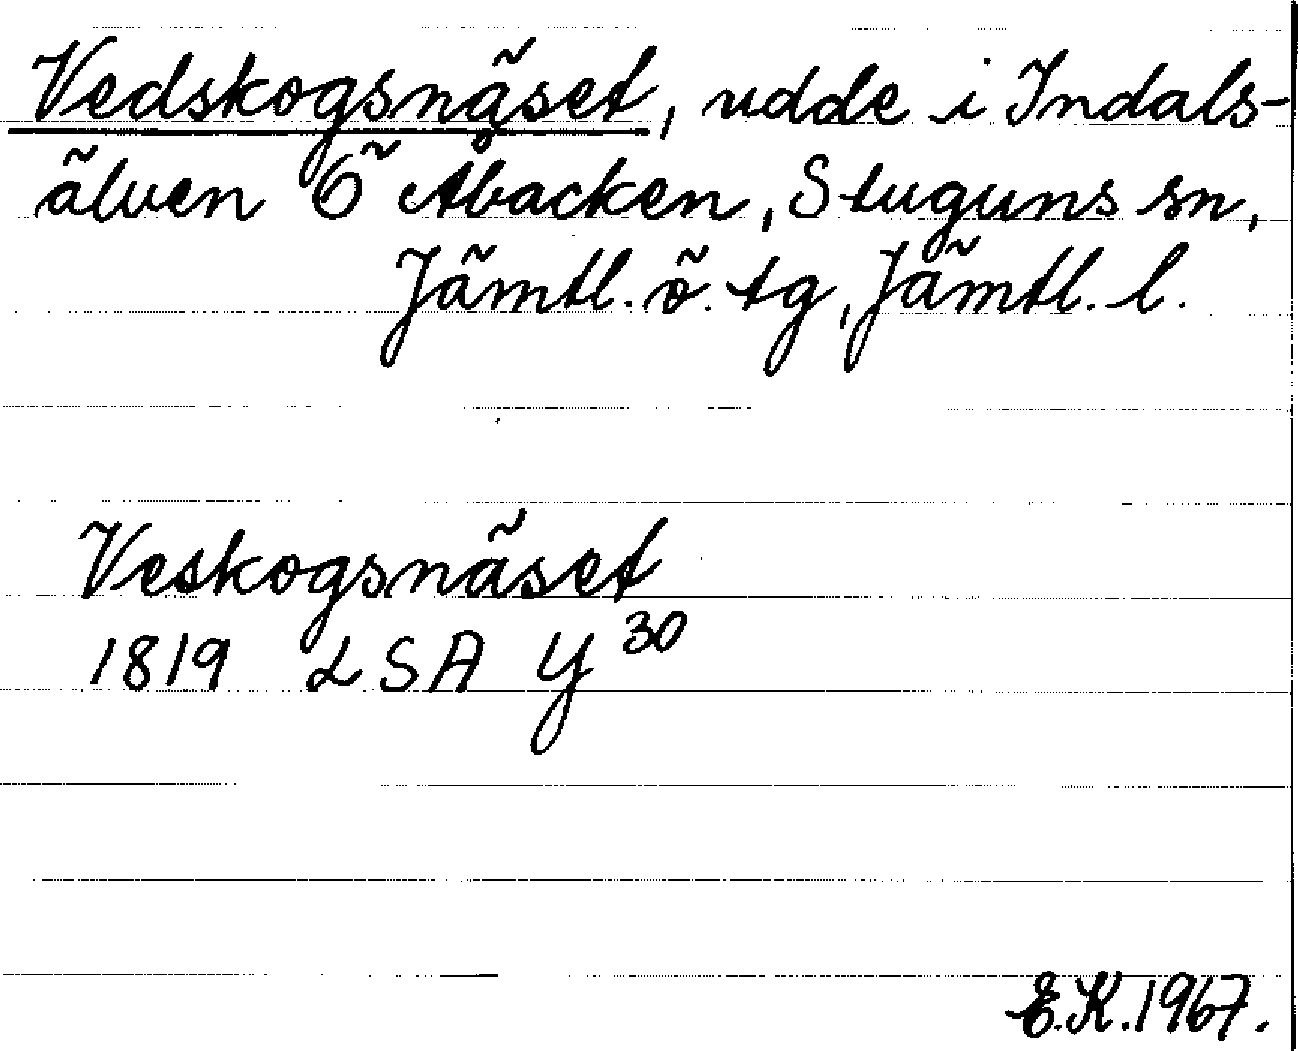 Vedskogsnäset, udde i Indals-
älven Ö Åbacken, Stuguns sn,
Jämtl. ö. tg, Jämtl. l.
Veskogsnäset
1819 LSA Y 30
E.K. 1967.